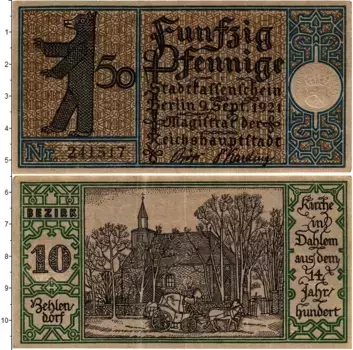 Funfzig
50 Pfennige
Stadtkassenschein
Berlin 9. Sept. 1921
Magistrat der
Reichshauptstadt
Nr. 241517
BEZIRK
10
Zehlen-
dorf
Kirche
in
Dahlem
aus dem
14.
Jahr-
hundert
1
2
3
4
5
6
7
8
9
10